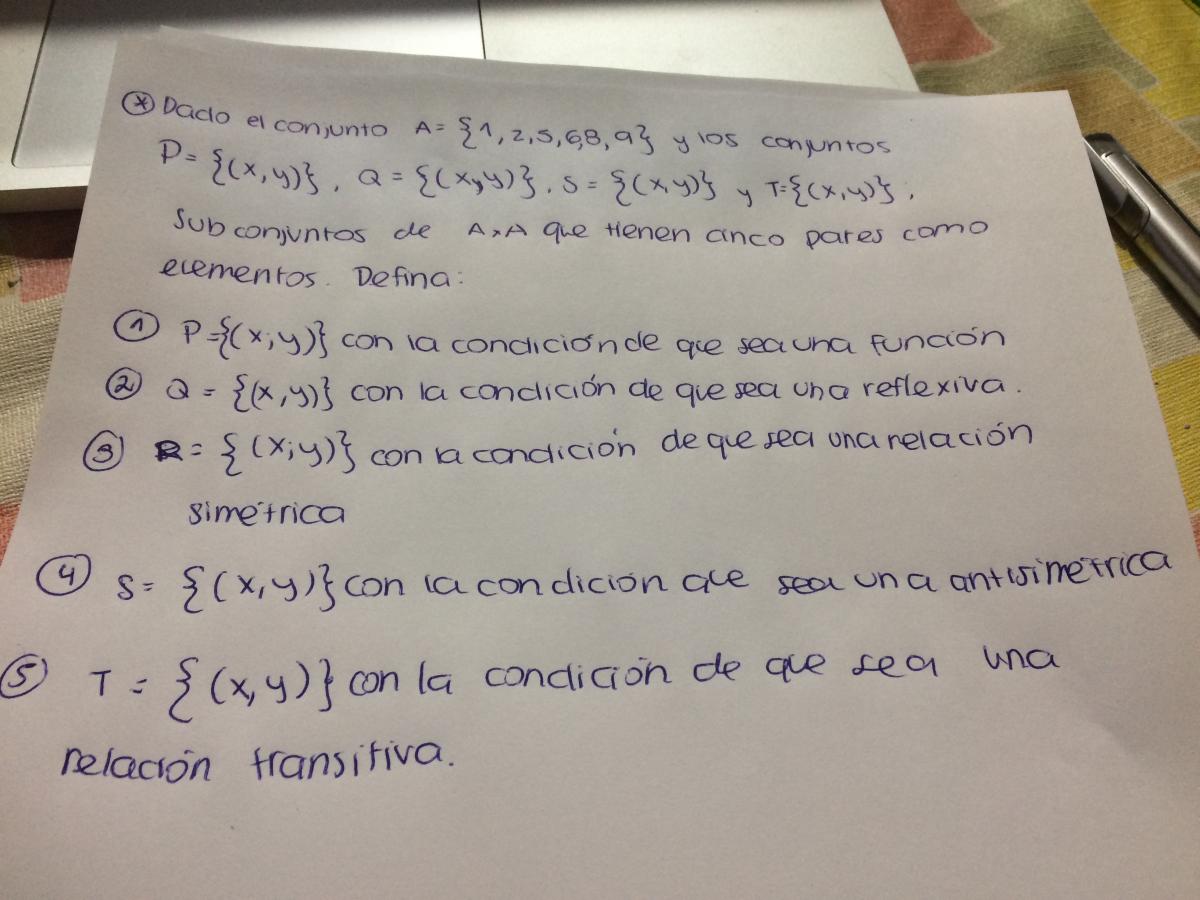 * Dado el conjunto A= {1, 2, 5, 6, 8, 9} y los conjuntos
P= {(x, y)}, Q = {(x, y)}, S = {(x, y)} y T={(x, y)},
Subconjuntos de AxA que tienen cinco pares como
elementos. Defina:
① P={(x; y)} con la condición de que sea una función
② Q = {(x, y)} con la condición de que sea una reflexiva.
③ R= {(x; y)} con la condición de que sea una relación
simétrica
④ S= {(x, y)} con la condición que sea una antisimétrica
⑤ T = {(x, y)} con la condición de que sea una
relación transitiva.